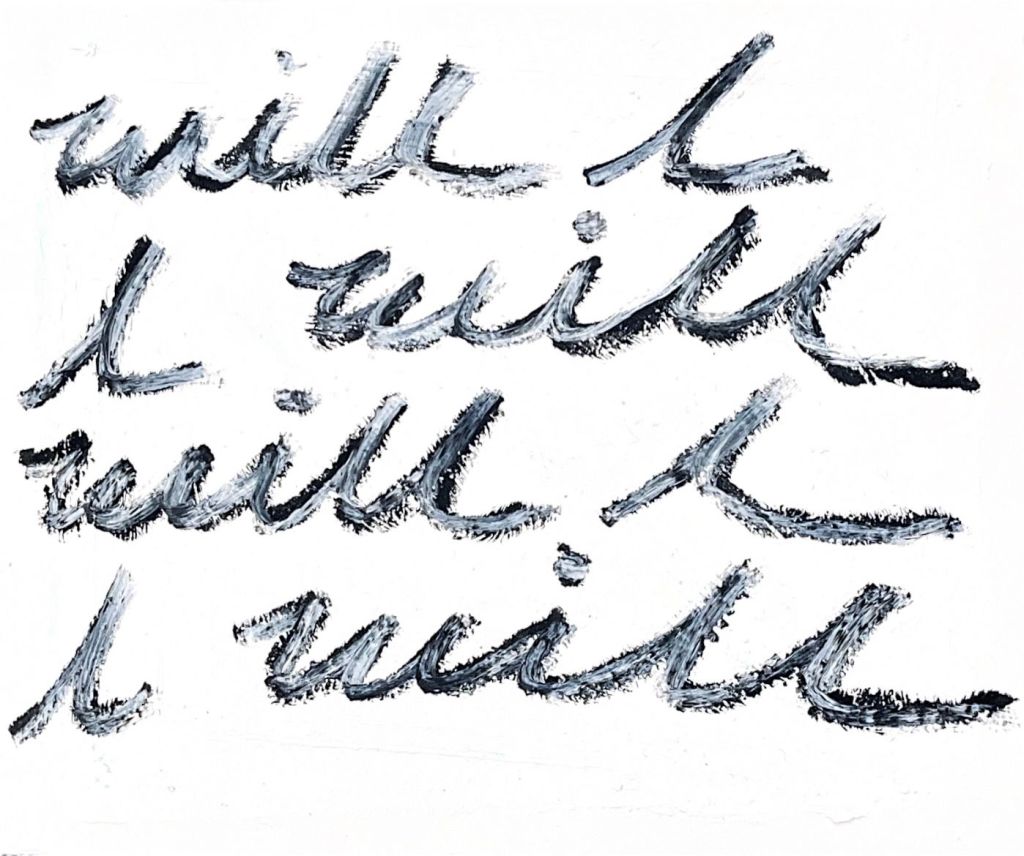 will I
I will
will I
I will